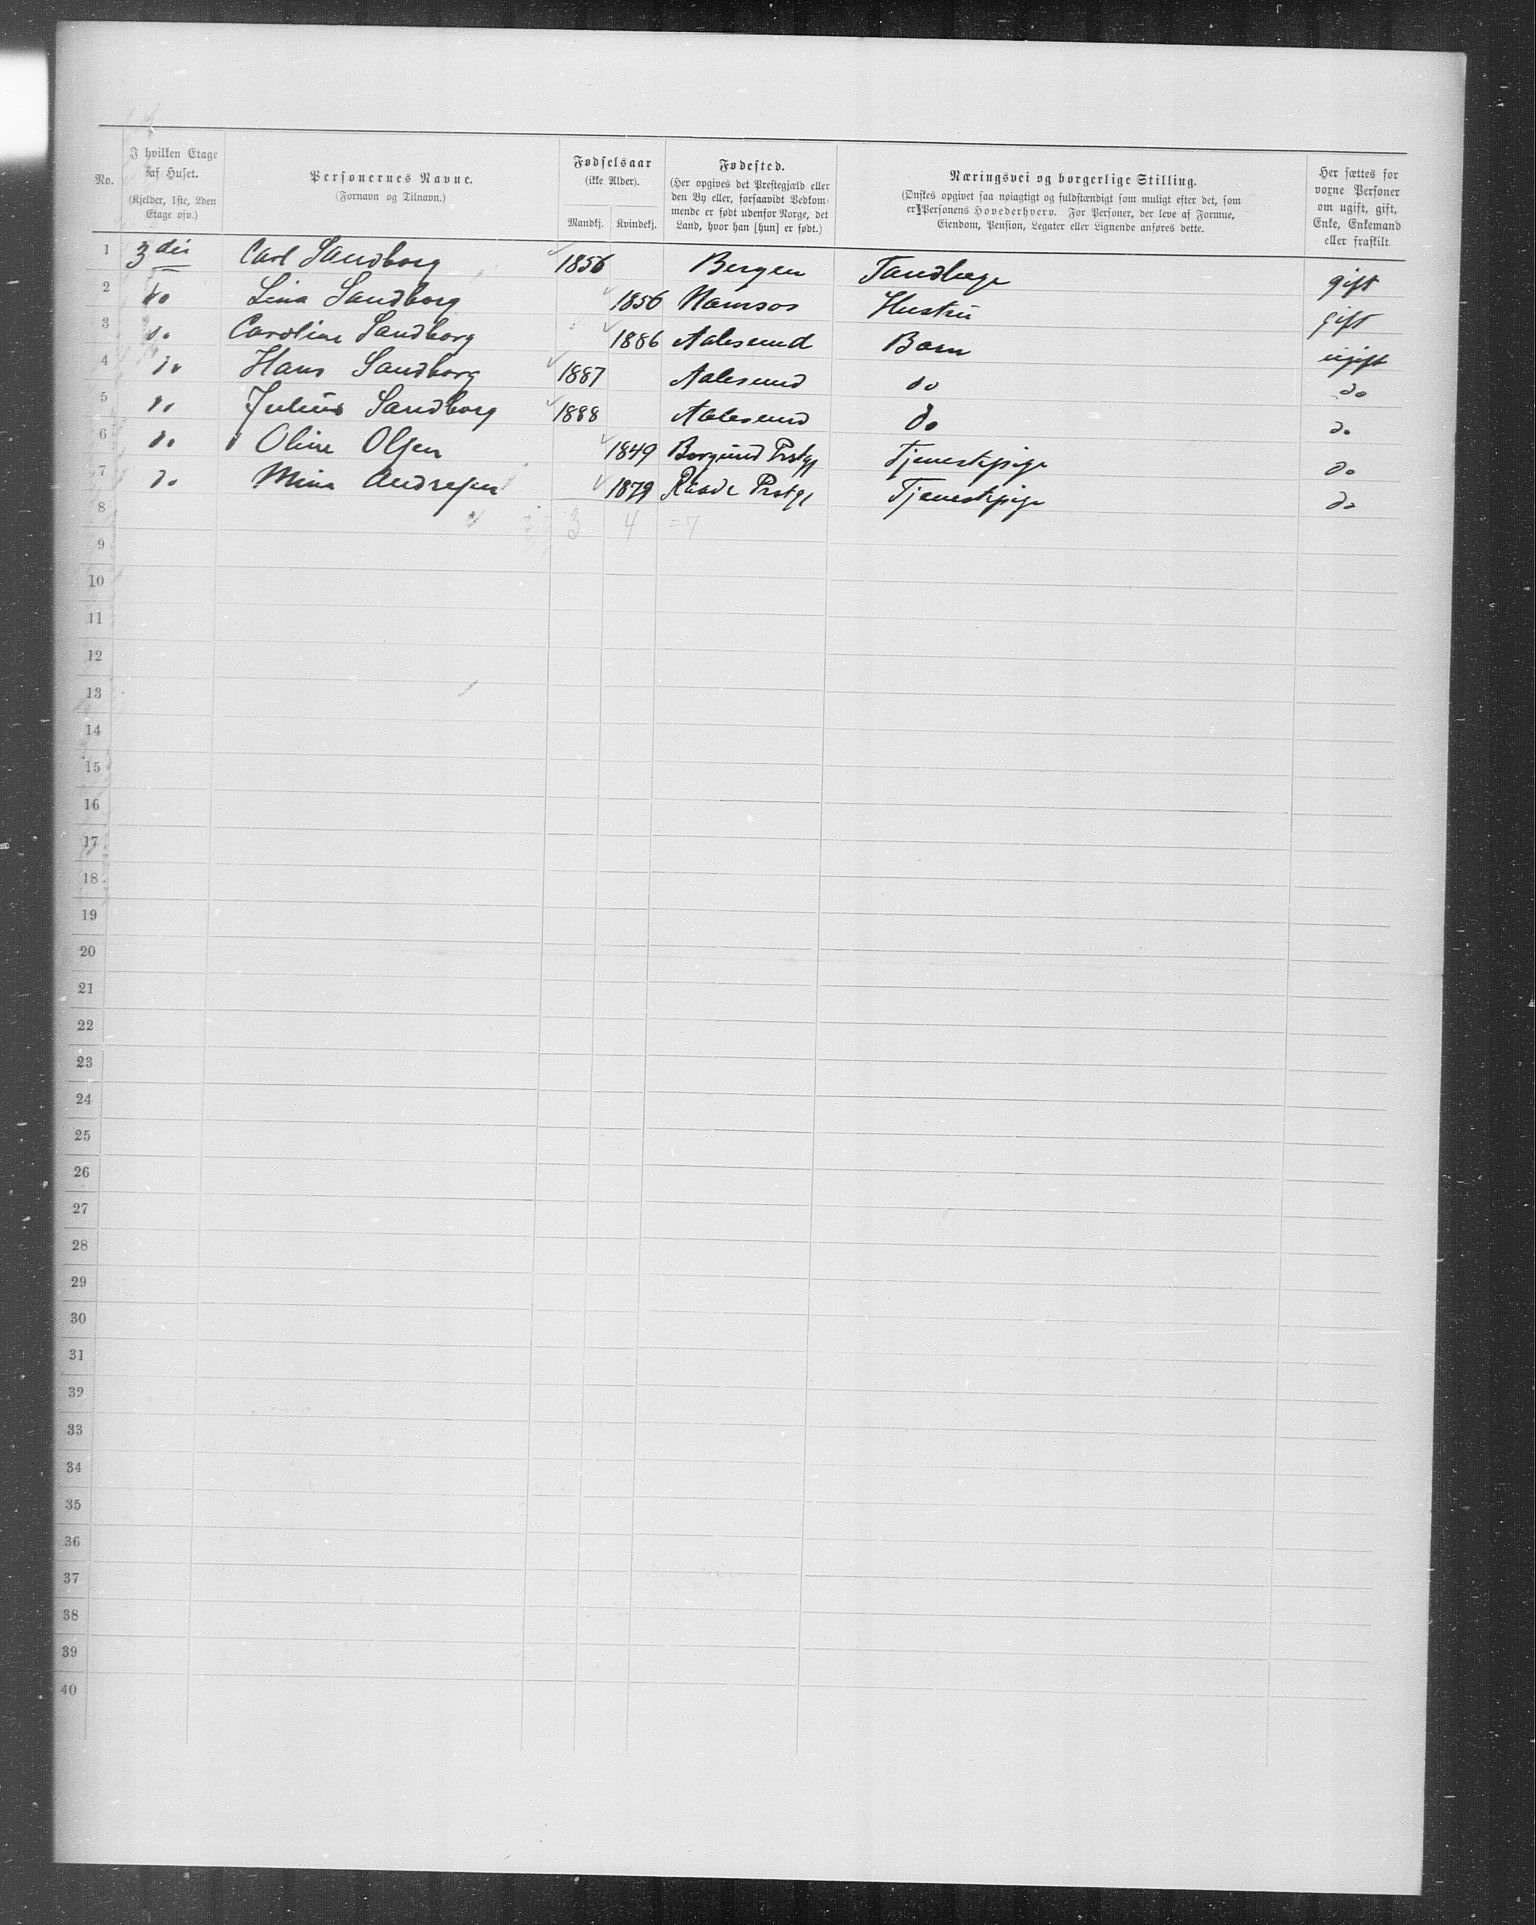 No.
I hvilken Etage af Huset.
(Kjelder, 1ste, 2den Etage osv.)
Personernes Navne.
(Fornavn og Tilnavn.)
Fødselsaar
(ikke Alder).
Mandkj. Kvindekj.
Fødested.
(Her opgives det Prestegjæld eller
den By eller, forsaavidt Vedkom-
mende er født udenfor Norge, det
Land, hvor han [hun] er født.)
Næringsvei og borgerlige Stilling.
(Ønskes opgivet saa nøiagtigt og fuldstændigt som muligt efter det, som
er Personens Hovederhverv. For Personer, der leve af Formue,
Eiendom, Pension, Legater eller Lignende anføres dette.
Her sættes for
voxne Personer
om ugift, gift,
Enke, Enkemand
eller fraskilt
1 3die Carl Sandborg 1856 Bergen Tandlæge gift
2 do Lina Sandborg 1856 Namsos Hustru gift
3 do Caroline Sandborg 1886 Aalesund Barn ugift
4 do Hans Sandborg 1887 Aalesund do do
5 do Julius Sandborg 1888 Aalesund do do
6 do Oline Olsen 1849 Borgund Prstgj Tjenestepige do
7 do Mina Andresen 1879 Raade Prstgj Tjenestepige do
8 3 4 =7
9
10
11
12
13
14
15
16
17
18
19
20
21
22
23
24
25
26
27
28
29
30
31
32
33
34
35
36
37
38
39
40